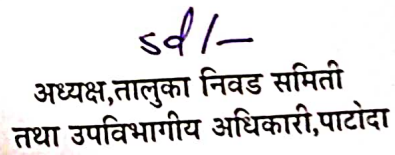 sd/-
अध्यक्ष,तालुका निवड समिती
तथा उपविभागीय अधिकारी,पाटोदा